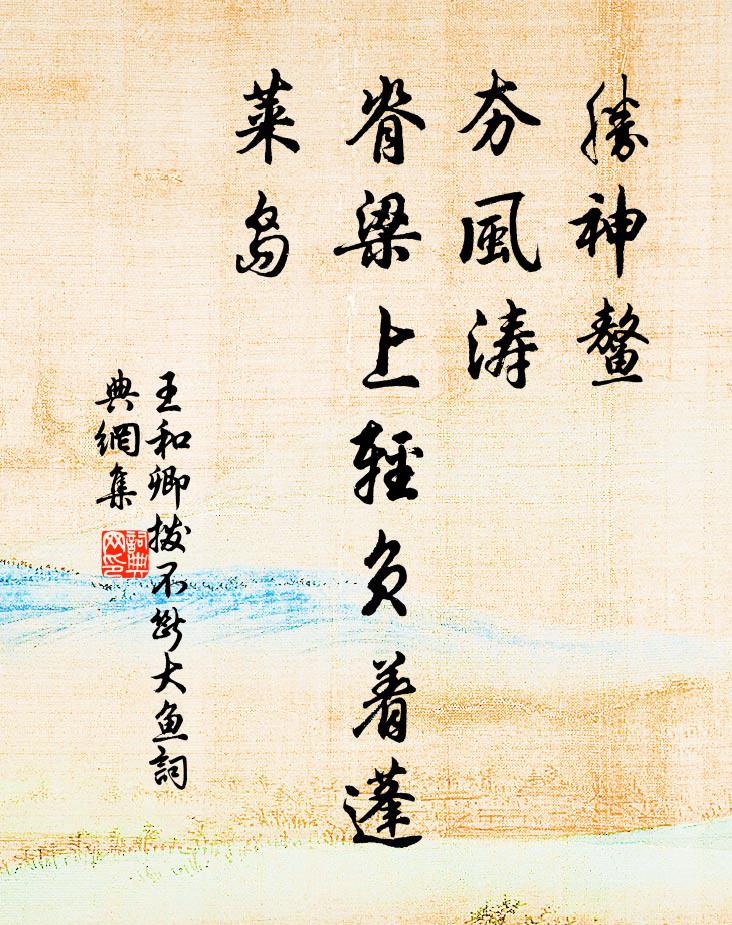 勝神鰲
夯風濤
脊梁上輕負着蓬
萊島
王和卿撥不斷大魚詞
典網集
詞典网印